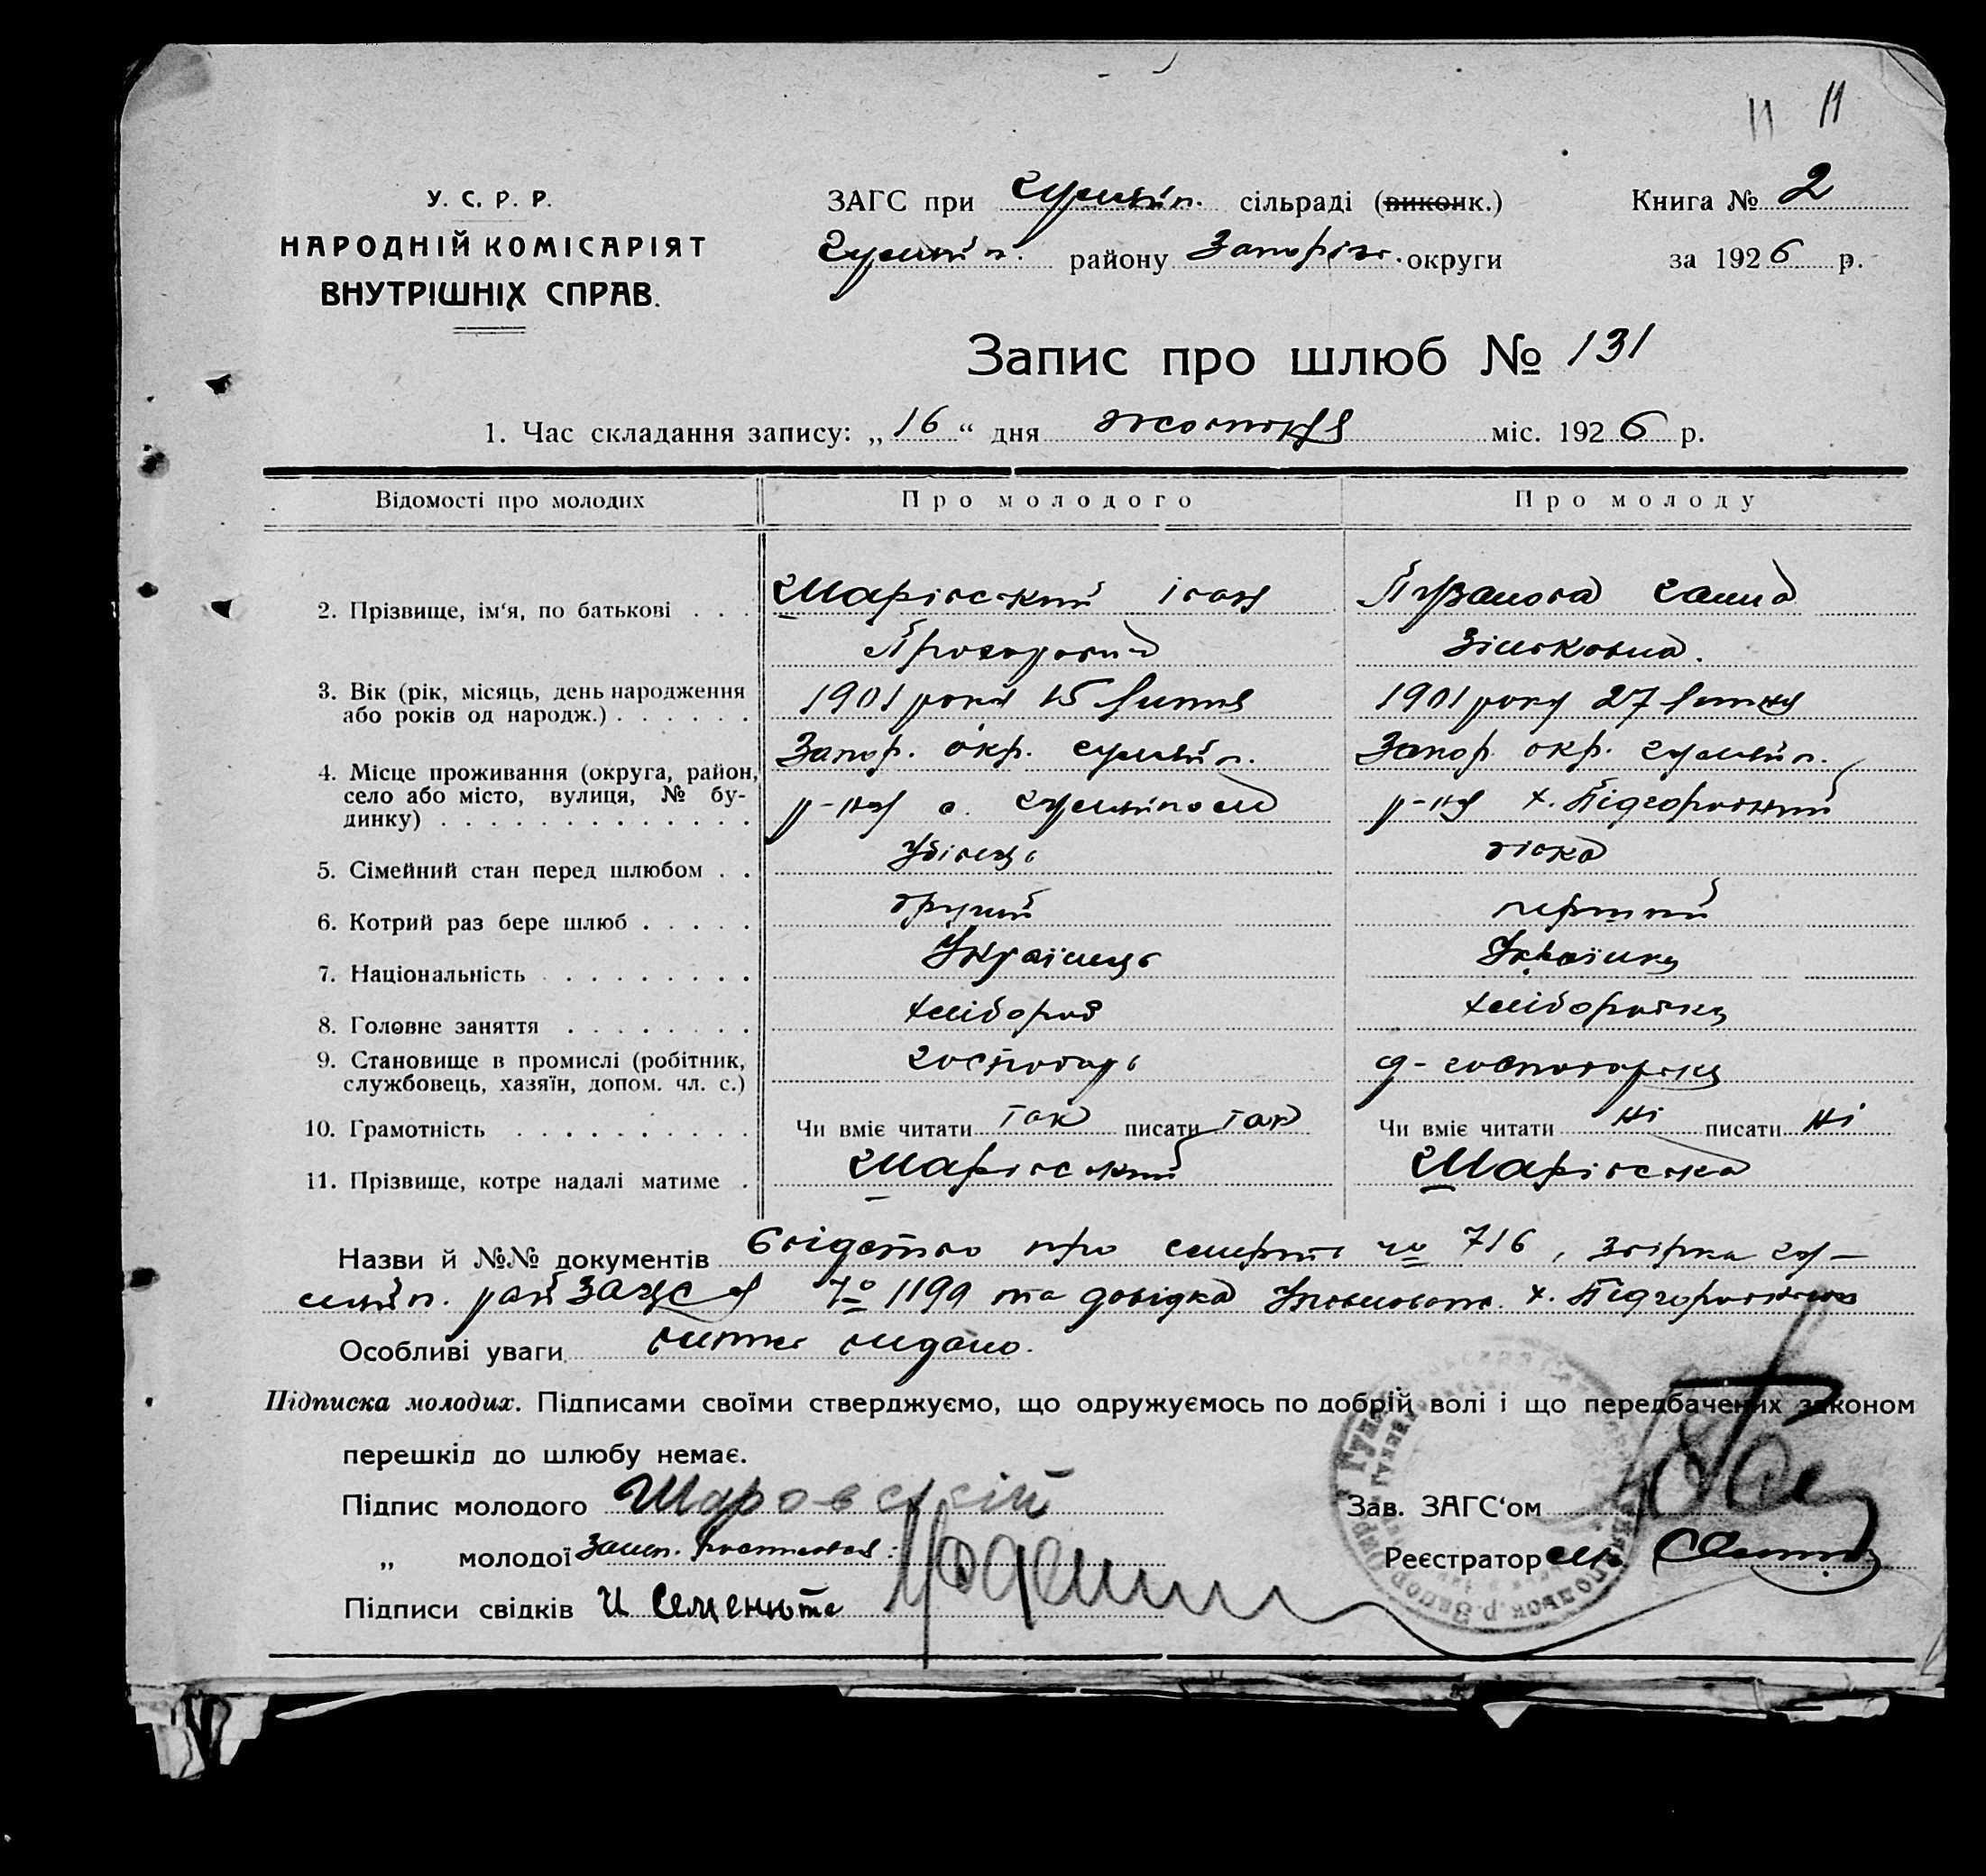 11 11
У. С. Р. Р.
НАРОДНІЙ КОМІСАРІЯТ
ВНУТРІШНІХ СПРАВ.
ЗАГС при Гуляйп. сільраді (виконк.)
Гуляйп. району Запоріз. округи
Книга № 2
за 1926 р.
Запис про шлюб № 131
1. Час складання запису: „16“ дня жовтня міс. 1926 р.
Відомості про молодих Про молодого Про молоду
2. Прізвище, ім'я, по батькові Шарівський Іван Ганна
Прохорович Зіньковна.
3. Вік (рік, місяць, день народження 1901 року 15 1901 року 27
або років од народж.)
4. Місце проживання (округа, район, Запор. окр. Гуляйп. Запор. окр. Гуляйп.
село або місто, вулиця, № бу- р-ну с. Гуляйполе р-ну х. Підгородний
динку)
5. Сімейний стан перед шлюбом удівець дівка
6. Котрий раз бере шлюб другий перший
7. Національність Українець Українка
8. Головне заняття хлібороб хліборобка
9. Становище в промислі (робітник, господарь д-господарська
службовець, хазяїн, допом. чл. с.)
10. Грамотність Чи вміє читати так писати так Чи вміє читати ні писати ні
11. Прізвище, котре надалі матиме Шарівський Шарівська
Назви й №№ документів Свідоцтво про смерть № 716, Гу-
ляйп. рай ЗАГСа № 1199 та довідка х.
Особливі уваги витяг видано.
Підписка молодих. Підписами своїми стверджуємо, що одружуємось по добрій волі і що передбачених законом
перешкід до шлюбу немає.
Підпис молодого Шаровский
Зав. ЗАГС'ом
„ молодої
Реєстратор
Підписи свідків И Семенюта